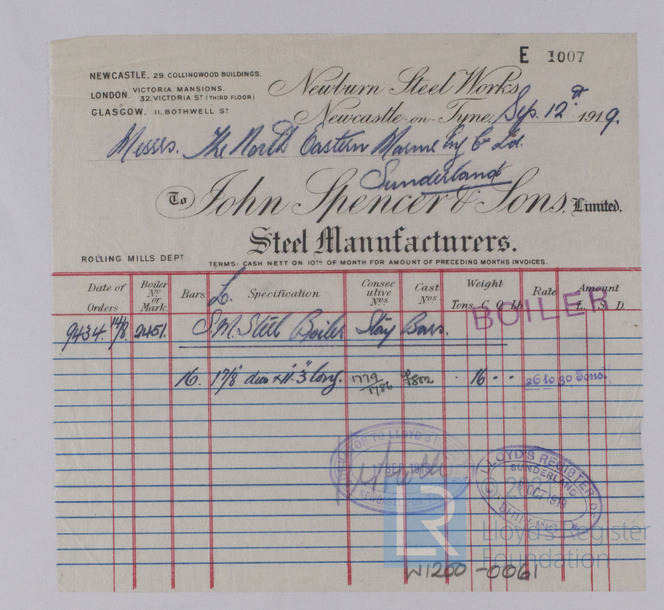 E 1007
NEWCASTLE, 29, COLLINGWOOD BUILDINGS.
LONDON, VICTORIA MANSIONS.
32, VICTORIA ST (THIRD FLOOR)
GLASGOW, 11, BOTHWELL ST
Newburn Steel Works,
Newcastle-on-Tyne, Sep. 12th 1919.
Messrs. The North Eastern Marine Eng Co Ld.
Sunderland
To John Spencer & Sons, Limited.
Steel Manufacturers.
ROLLING MILLS DEPT
TERMS: CASH NETT ON 10TH OF MONTH FOR AMOUNT OF PRECEDING MONTHS INVOICES.
Date of Orders Boiler Nº or Mark. Bars Specification Consecutive Nºs Cast Nºs Weight Tons. C. Q. Lb Rate Amount £. S. D.
BOILER
9434. 14/8. 2451. S.M. Steel Boiler Stay Bars.
16. 1 7/8" dia x 11'.3" long. 1779/1786 16 - - 26 to 30 tons.
SURVEYOR TO LLOYD'S
SEP 1919
LLOYD'S REGISTER OF
SUNDERLAND
OCT 1919
SHIPPING
LR
Lloyd's Register
Foundation
W1200-0061